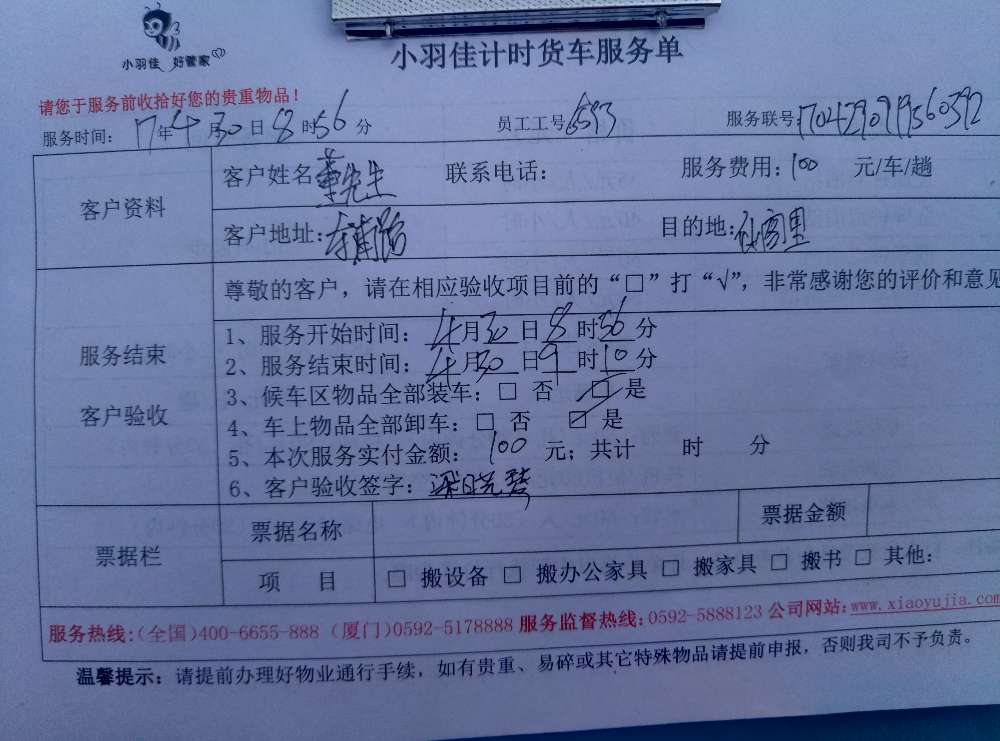 小羽佳 好管家
小羽佳计时货车服务单
请您于服务前收拾好您的贵重物品！
服务时间： 17年4月30日8时56分 员工工号 6593 服务联号:
客户资料
客户姓名 先生 联系电话： 服务费用：100 元/车/趟
客户地址: 目的地:
服务结束
客户验收
尊敬的客户，请在相应验收项目前的“□”打“√”，非常感谢您的评价和意见
1、服务开始时间： 4月30日8时56分
2、服务结束时间： 4月30日9时10分
3、候车区物品全部装车：□ 否 ☑ 是
4、车上物品全部卸车：□ 否 ☑ 是
5、本次服务实付金额： 100 元；共计 时 分
6、客户验收签字：
票据栏
票据名称 票据金额
项 目 □ 搬设备 □ 搬办公家具 □ 搬家具 □ 搬书 □ 其他:
服务热线:(全国)400-6655-888 (厦门)0592-5178888 服务监督热线:0592-5888123 公司网站:www.xiaoyujia.com
温馨提示：请提前办理好物业通行手续，如有贵重、易碎或其它特殊物品请提前申报，否则我司不予负责。